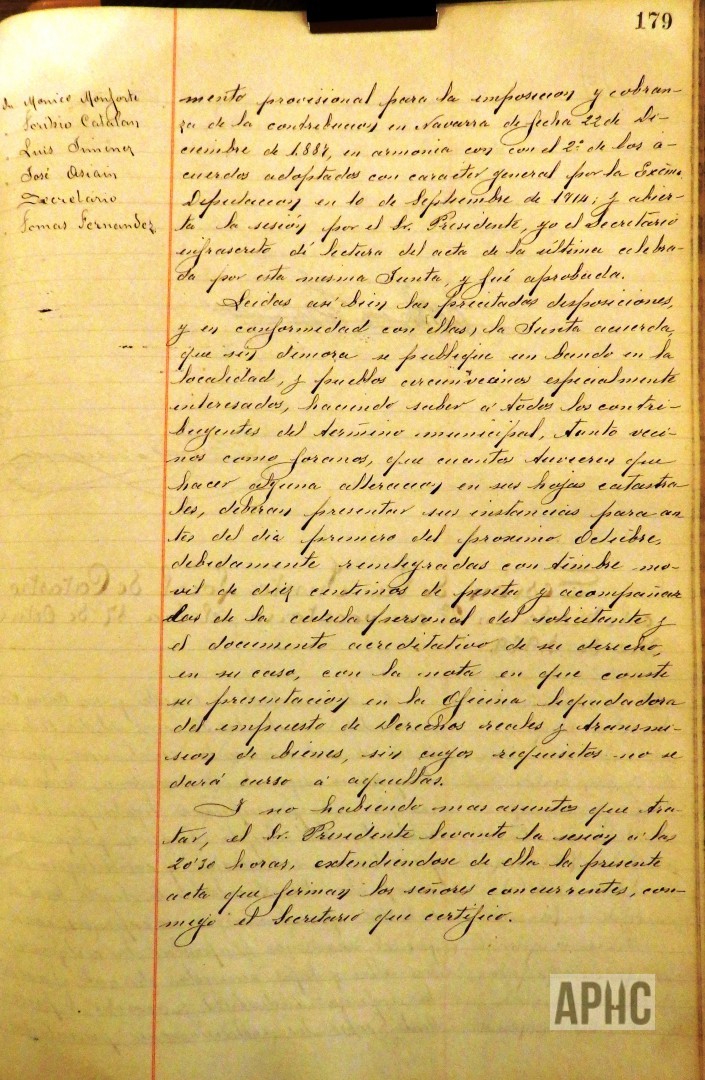 179
Dn Monico Monforte
Toribio Catalan
Luis Jimenez
José Osiain
Secretario
Tomas Fernandez
mento provisional para la imposicion y cobran-
za de la contribucion en Navarra de fecha 22 de Di-
ciembre de 1.887, en armonia con con el 2º de los a-
cuerdos adoptados con caracter general por la Excma
Diputacion en 10 de Septiembre de 1914; y abier-
ta la sesión por el Sr. Presidente, yo el Secretario
infrascrito dí lectura del acta de la última celebra-
da por esta misma Junta, y fué aprobada.
Leidas asi bien las precitadas disposiciones,
y en conformidad con ellas, la Junta acuerda,
que sin demora se publique un bando en la
localidad, y pueblos circunvecinos especialmente
interesados, haciendo saber á todos los contri-
buyentes del término municipal, tanto veci-
nos como foranos, que cuantos tuvieren que
hacer alguna alteracion en sus hojas catastra-
les, deberan presentar sus instancias para an-
tes del dia primero del proximo Octubre,
debidamente reintegradas con timbre mo-
vil de diez centimos de peseta y acompañar
las de la cedula personal del solicitante y
el documento acreditativo de su derecho,
en su caso, con la nota en que conste
su presentacion en la Oficina liquidadora
del impuesto de Derechos reales y transmi-
sion de bienes, sin cuyos requisitos no se
dará curso á aquellas.
Y no habiendo mas asuntos que tra-
tar, el Sr. Presidente levanto la sesion á las
20'30 horas, extendiendose de ella la presente
acta que firman los señores concurrentes, con-
migo el Secretario que certifico.
APHC